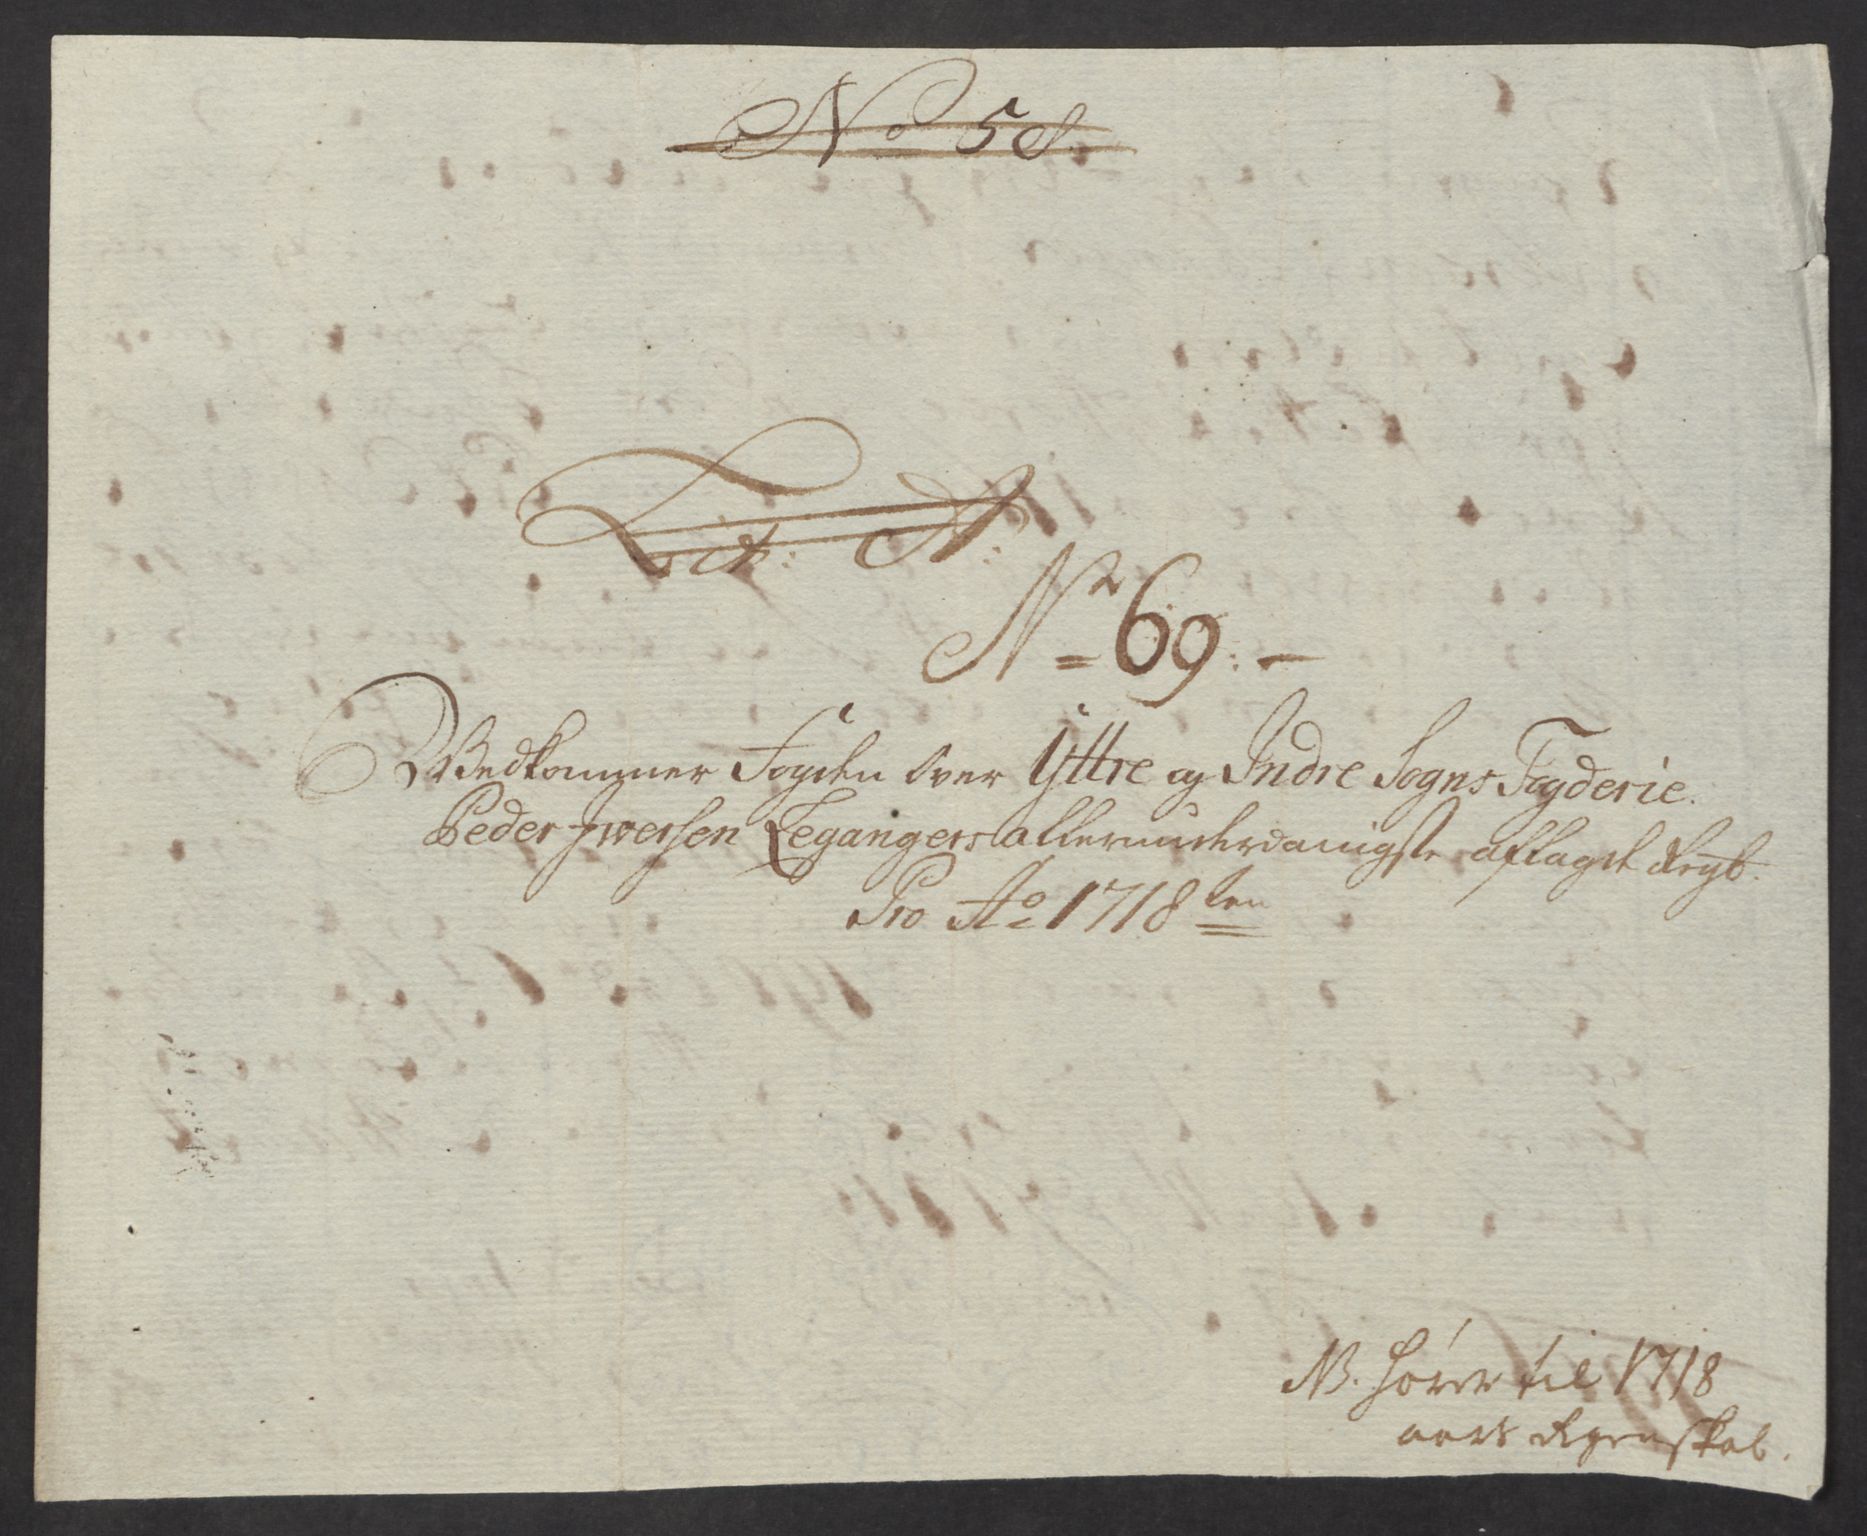 No 58.
Lit: A:
No 69: –
Vedkommer Fogden over Yttre og Indre Sogns Fogderie.
Peder Jwersen Legangers allerunderdanigste aflagde Regb:
Pro Ao 1718ten
NB. hører til 1718
aars Regenskab.